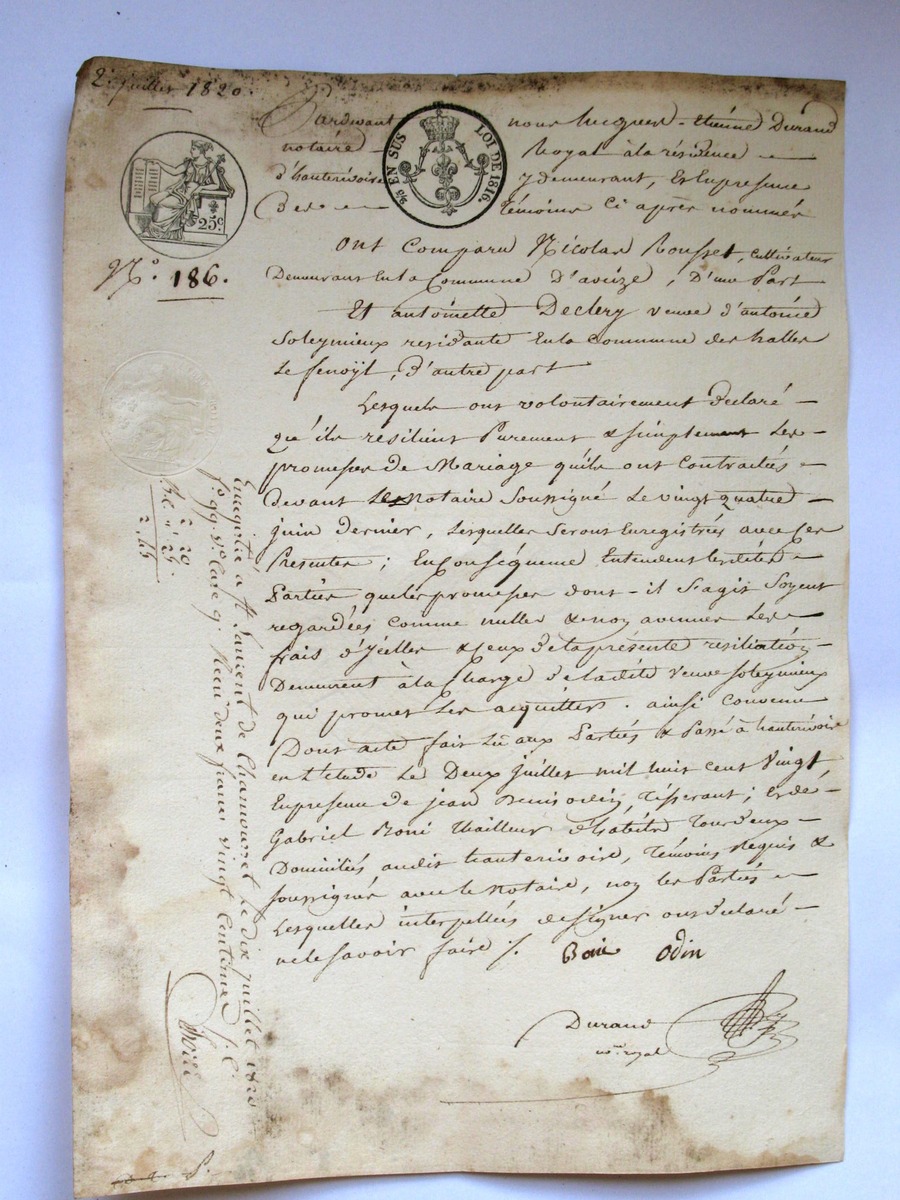 2. juillet 1820.
Pardevant nous Etiénne Durand
notaire Royal à la résidence
d'hauterivoire y demeurant, Et En presence
Des témoins Ci après nommés
EN SUS
LOI DE 1816.
25c
N.° 186.
Ont Comparu Nicolas Rousset, Cultivateur
Demeurant En la Commune D'aveize, D'une Part
Et antoinette Declery veuve d'antoine
Soleymieux residante En la Commune des halles
Le fenoÿl, d'autre part
Lesquels ont volontairement Declaré
qu'ils résilient Purement & simplement Les
promesses de Mariage quils ont Contractés
devant Le Notaire Soussigné Le vingt quatre
juin dernier, Lesquelles Seront Enregistrées avec Ces
Presentes; En Conséquence Entendent Lesdites
Parties que les promesses dont-il S'agit Soyent
regardées comme nulles & non avenues Les
frais d'Ycelles & Ceux de la présente resiliation
Demeurent à la Charge de la dite Veuve Soleymieux
qui promet Les acquitter. ainsi Convenu
Dont acte fait Lû aux Parties & Passé à hauterivoire
en L'Etude Le Deux juillet mil huit Cent Vingt,
En presence de jean Denis odin, Tisserant; & de
Gabriel Boni thailleur d'habits Tous deux
Domiciliés audit hauterivoire, Témoins Requis &
Soussignés avec le Notaire, non les Parties
Lesquelles interpellées de signer ont declaré
ne le savoir faire ./.
Odin
Durand
n.re royal
Enregistré à St Laurent de Chamousset le dix juillet 1820
f.° 99 V.° Case 9. Recu deux francs vingt Centimes
2 20
" 25
2,45